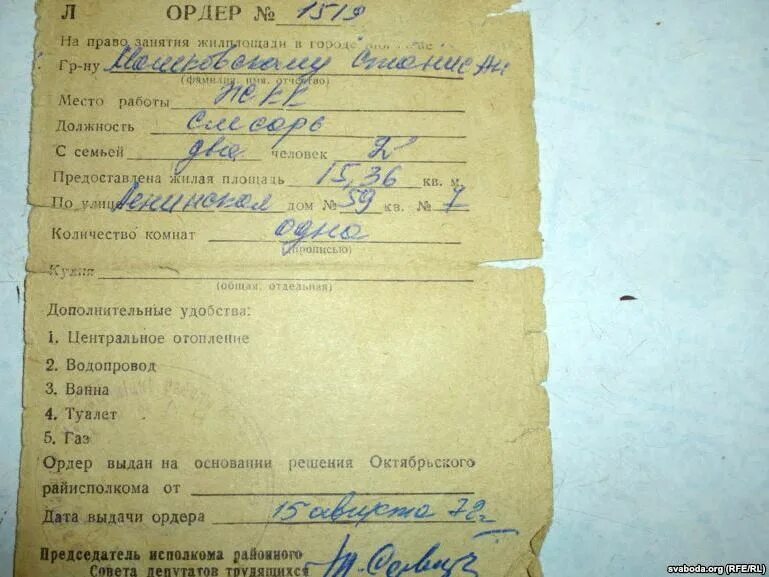 Л ОРДЕР № 1519
На право занятия жилплощади в городе
Гр-ну Станисл
(фамилия, имя, отчество)
Место работы
Должность слесарь
С семьей два человек 2
Предоставлена жилая площадь 15,36 кв. м.
По улице Ленинской дом № 59 кв. № 7
Количество комнат одна
(прописью)
Кухня
(общая, отдельная)
Дополнительные удобства:
1. Центральное отопление
2. Водопровод
3. Ванна
4. Туалет
5. Газ
Ордер выдан на основании решения Октябрьского
райисполкома от
Дата выдачи ордера 15 августа 72 г
Председатель исполкома районного
Совета депутатов трудящихся
svaboda.org (RFE/RL)